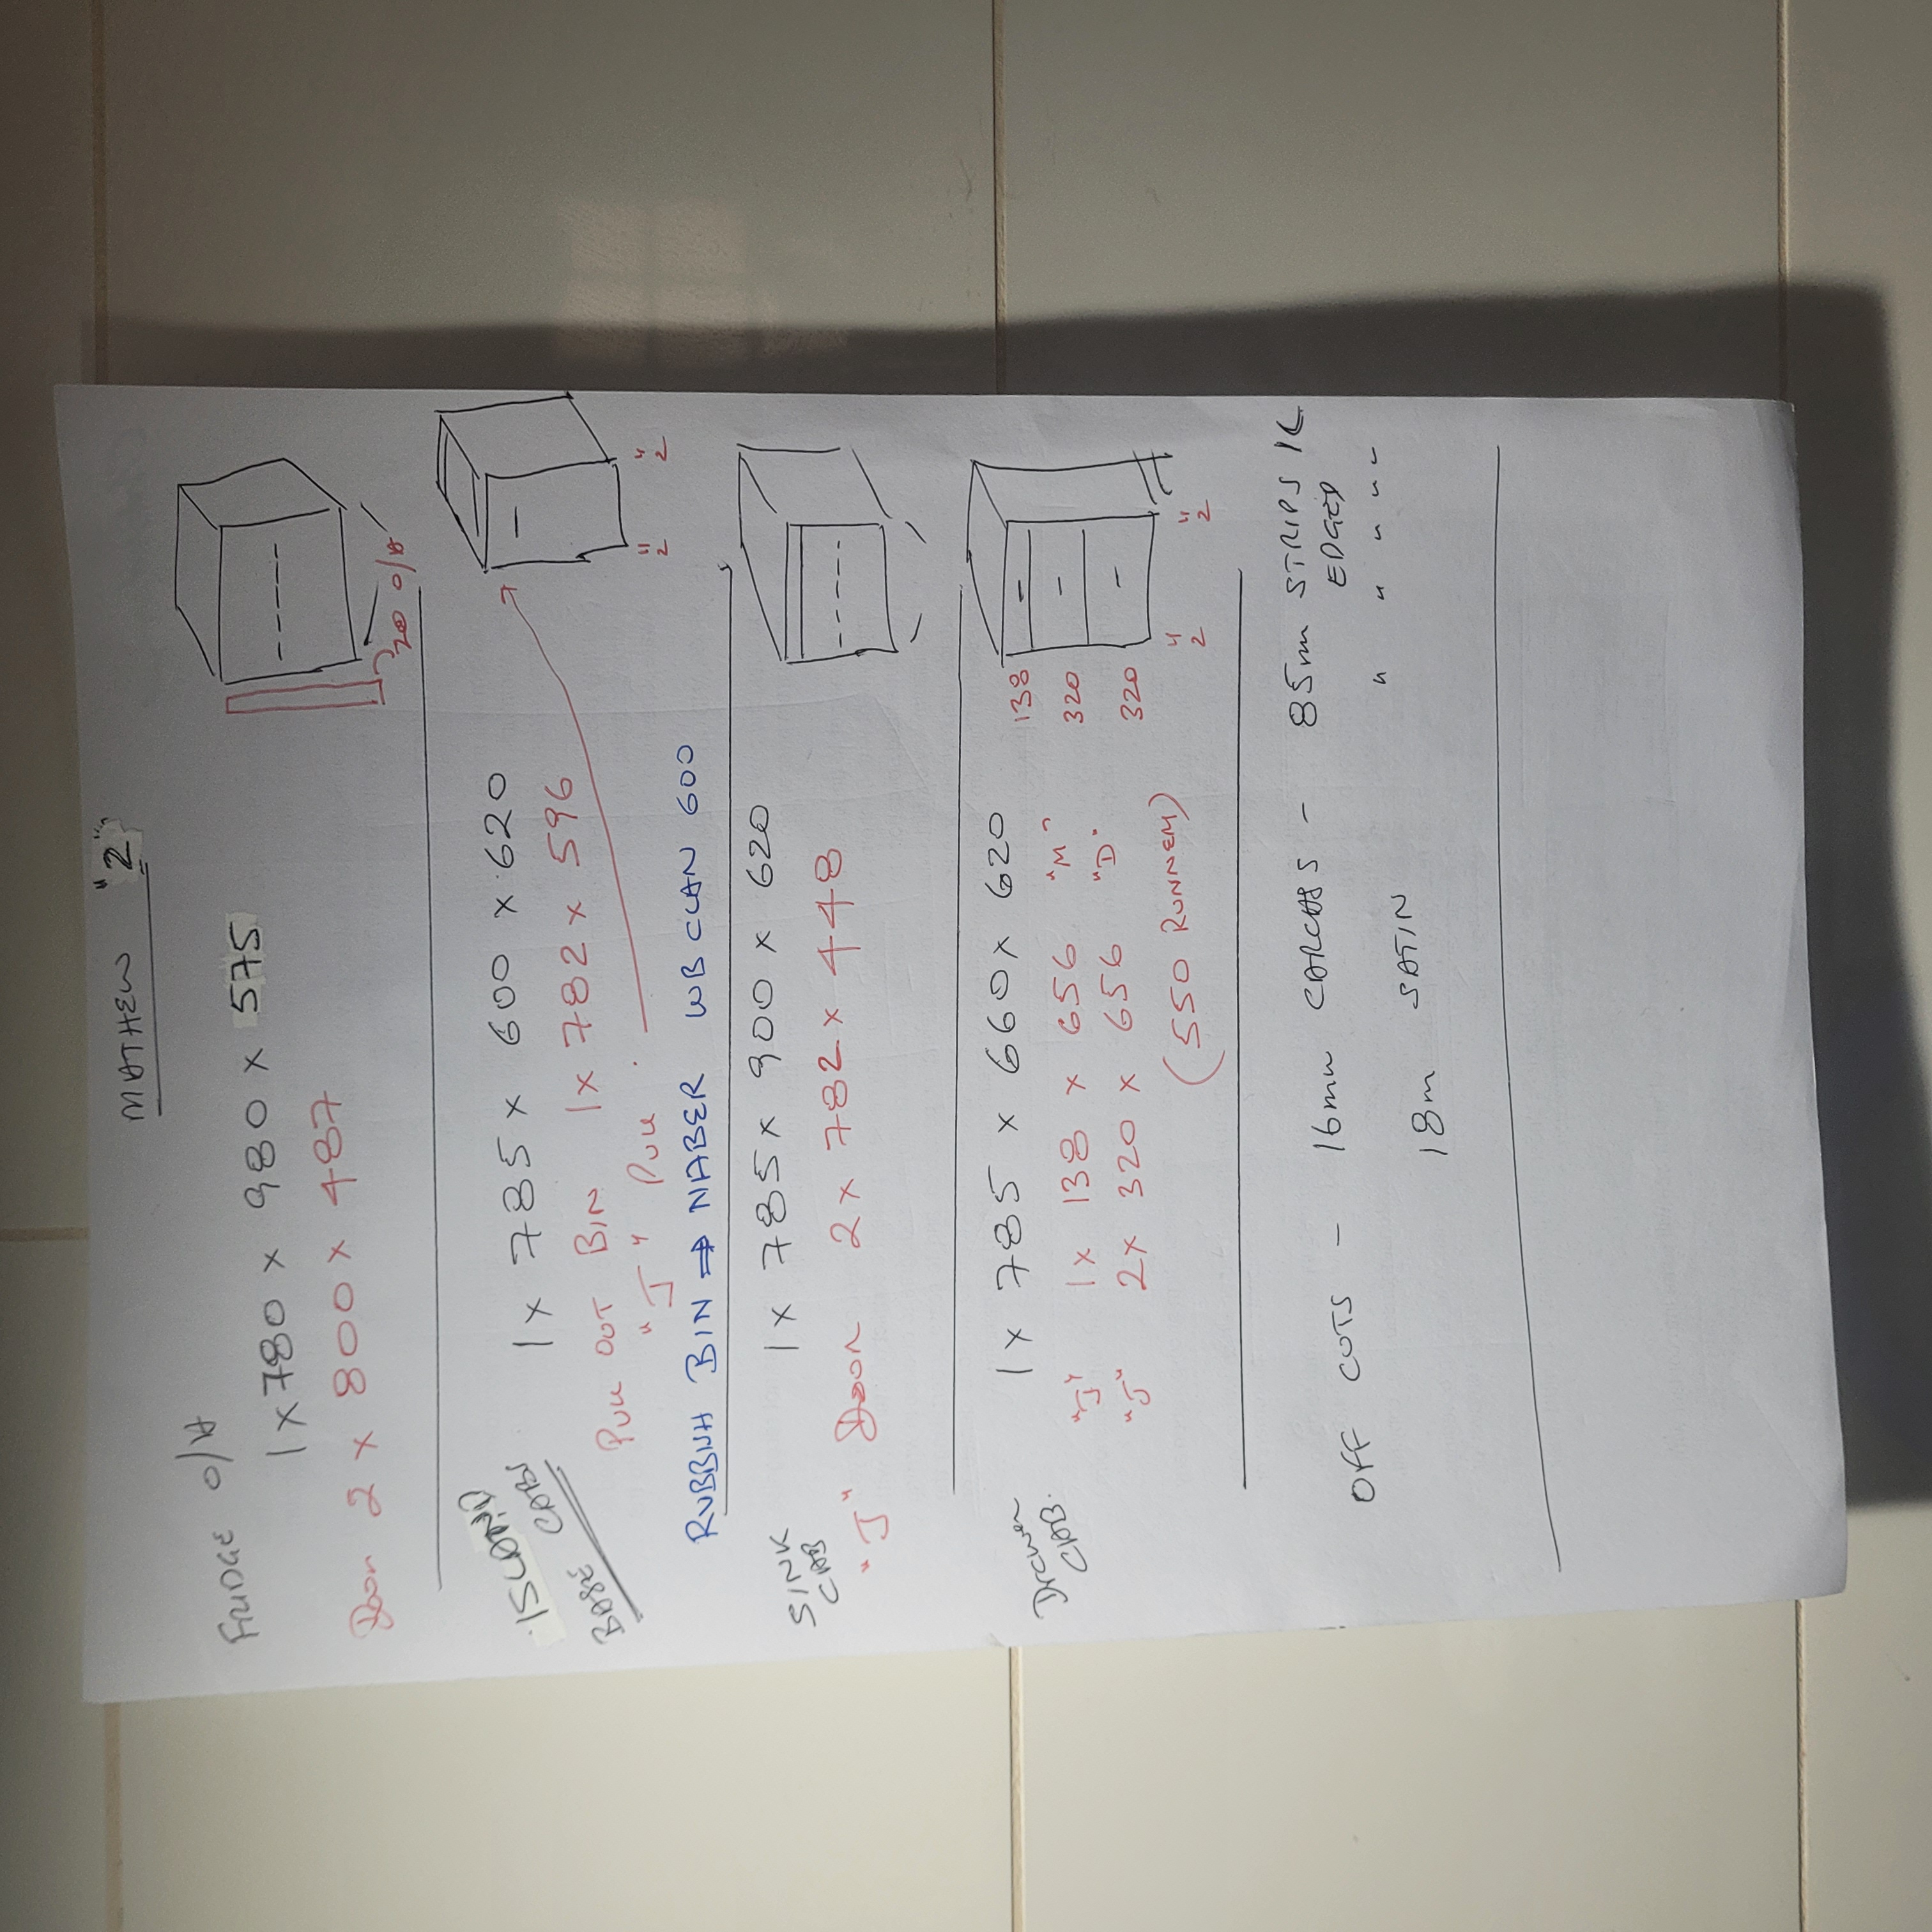 MATHEW "2"
FRIDGE O/H
1 x 780 x 980 x 575
DOOR 2 x 800 x 487
20 O/H
ISLAND
BASE CABS
1 x 785 x 600 x 620
PULL OUT BIN 1 x 782 x 596
"J" PULL
" "
2 2
RUBBISH BIN ⇒ NABER WB CLAN 600
SINK CAB
1 x 785 x 900 x 620
"J" DOOR 2 x 782 x 448
DRAWER CAB.
1 x 785 x 660 x 620
"J" 1 x 138 x 656 "M"
"J" 2 x 320 x 656 "D"
(550 RUNNER)
138
320
320
" "
2 2
OFF CUTS - 16mm CARCASS - 85m STRIPS 1L
EDGED
18m SATIN " " " " "